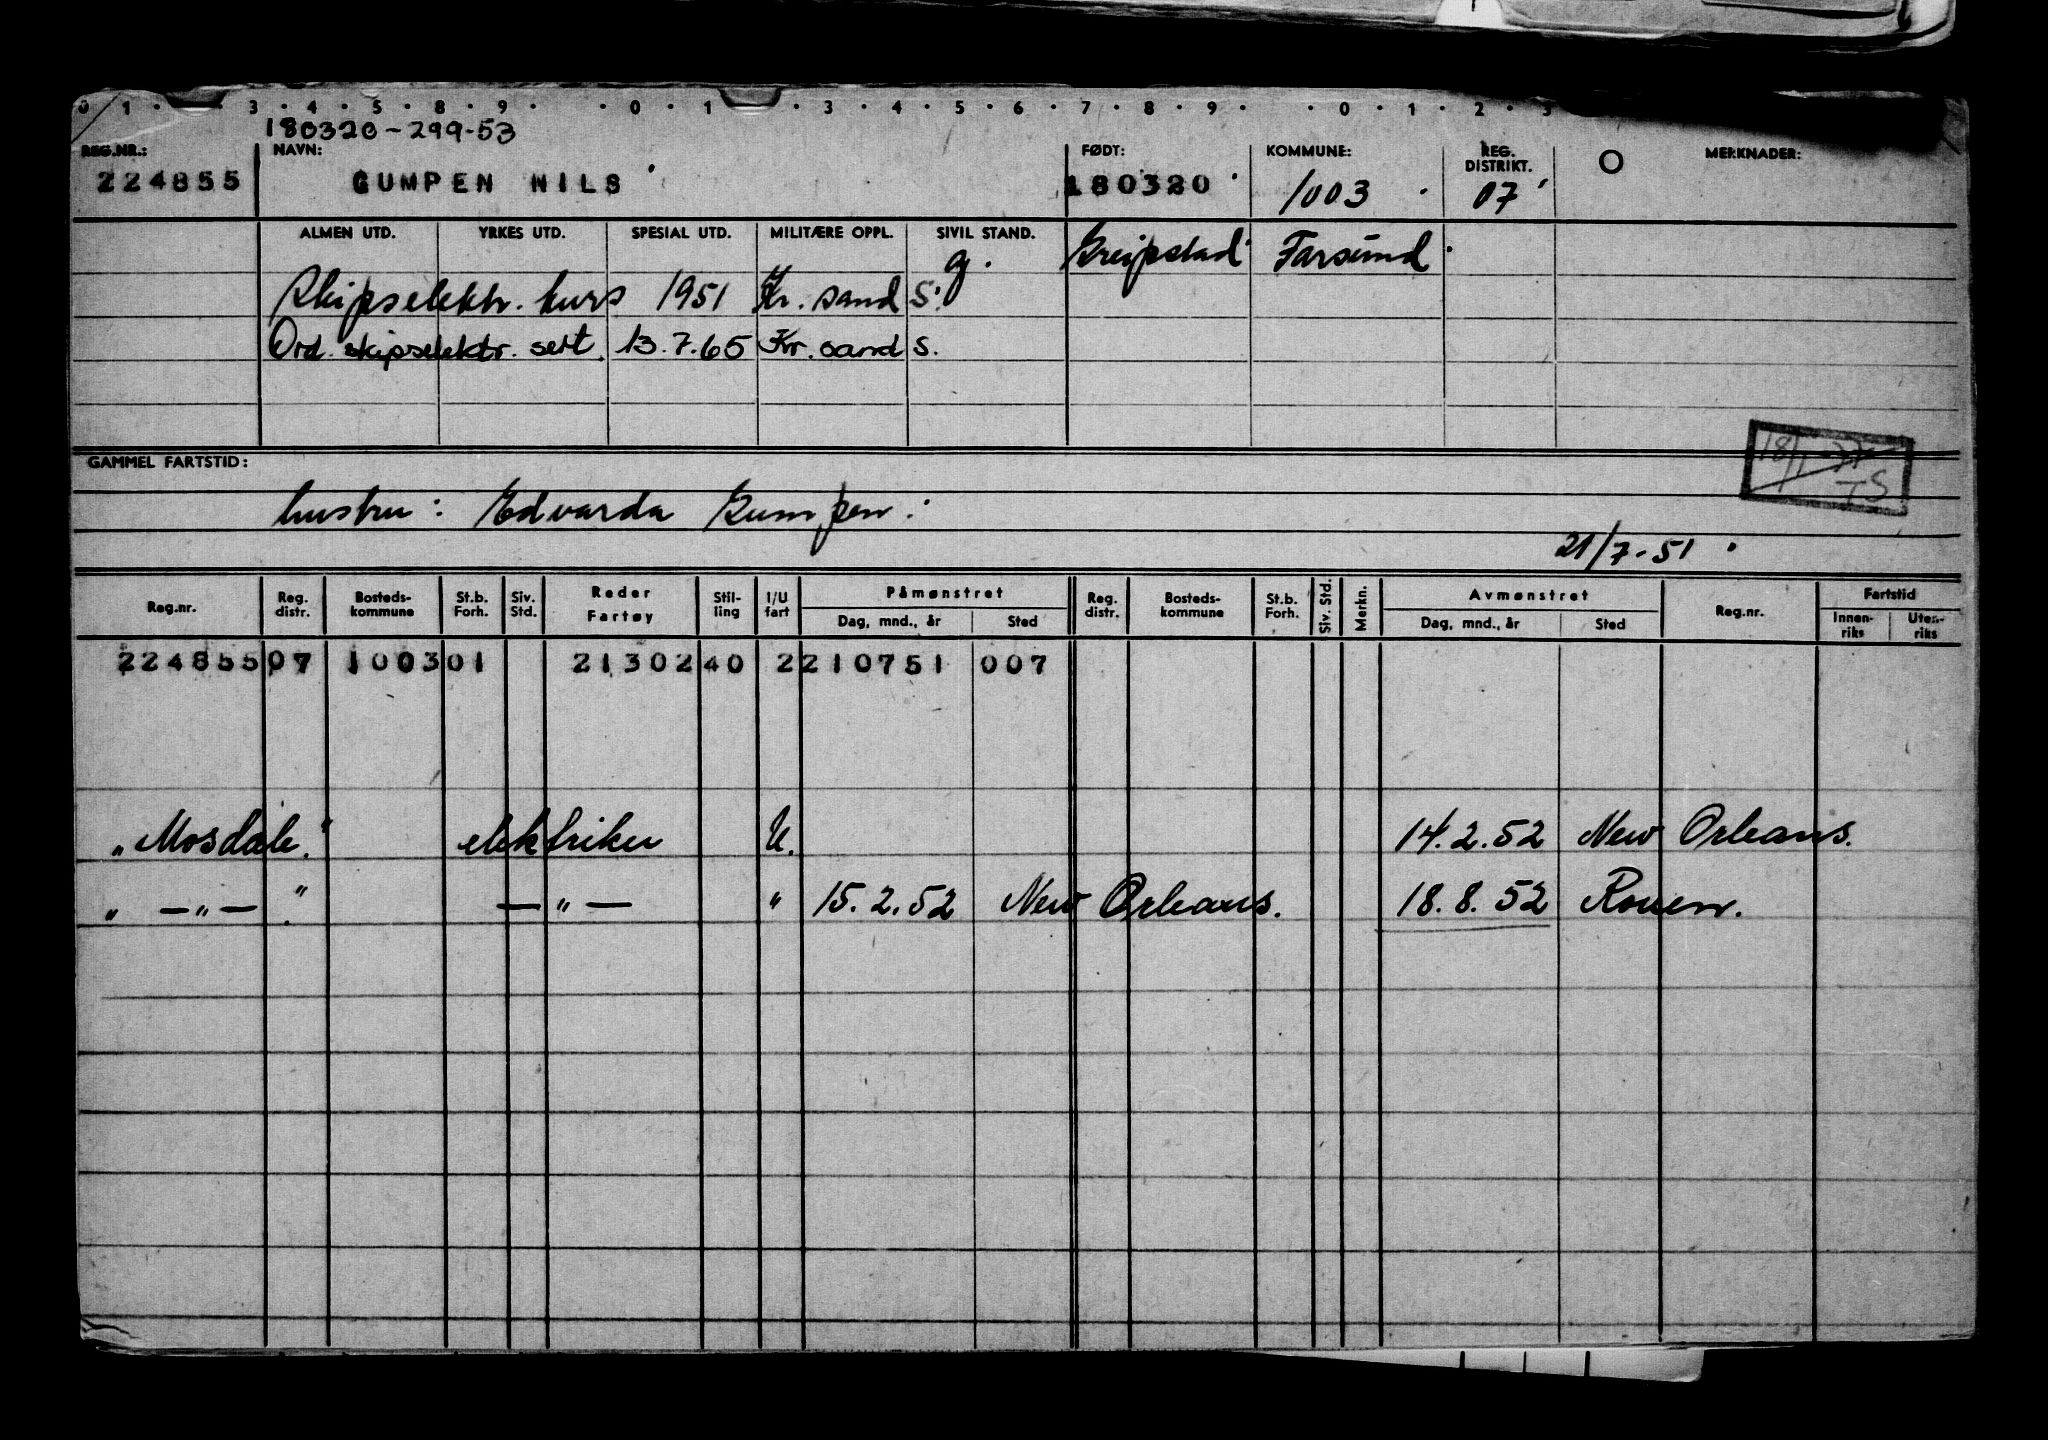 0 1 · 3 · 4 · 5 · 8 · 9 · · 0 · 1 · 3 · 4 · 5 · 6 · 7 · 8 · 9 · · 0 · 1 · 2 · 3
180320-299-53
REG.NR.: NAVN: FØDT: KOMMUNE: REG. DISTRIKT. O MERKNADER:
224855 GUMPEN NILS 180320 1003 07
ALMEN UTD. YRKES UTD. SPESIAL UTD. MILITÆRE OPPL. SIVIL STAND.
g. Greipstad Farsund
Skipselektr. kurs 1951 Kr. sand S.
Ord. skipselektr. sert. 13.7.65 Kr. sand S.
GAMMEL FARTSTID:
18/1-77
TS
hustru: Edvarda Gumpen.
21/7-51
Reg.nr. Reg. distr. Bosteds-kommune St.b. Forh. Siv. Std. Reder Fartøy Stil-ling I/U fart Påmønstret Dag, mnd., år Sted Reg. distr. Bosteds-kommune St.b. Forh. Siv. Std. Merkn. Avmønstret Dag, mnd., år Sted Reg.nr. Fartstid Innen-riks Uten-riks
224855 07 1003 01 21302 40 2 210751 007
„Mosdale." elektriker U. 14.2.52 New Orleans.
„ —"— ". —"— " 15.2.52 New Orleans. 18.8.52 Rouen.